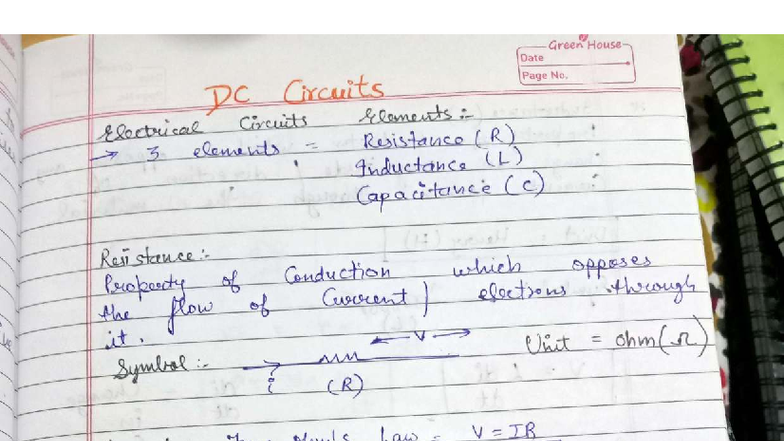 Green House
Date
Page No.
DC Circuits
Electrical Circuits Elements :-
→ 3 elements = Resistance (R)
Inductance (L)
Capacitance (C)
Resistance :-
Property of Conduction which opposes
the flow of Current / electrons through
it.
← V →
Unit = ohm (Ω)
Symbol :-
i (R)
Law = V = IR